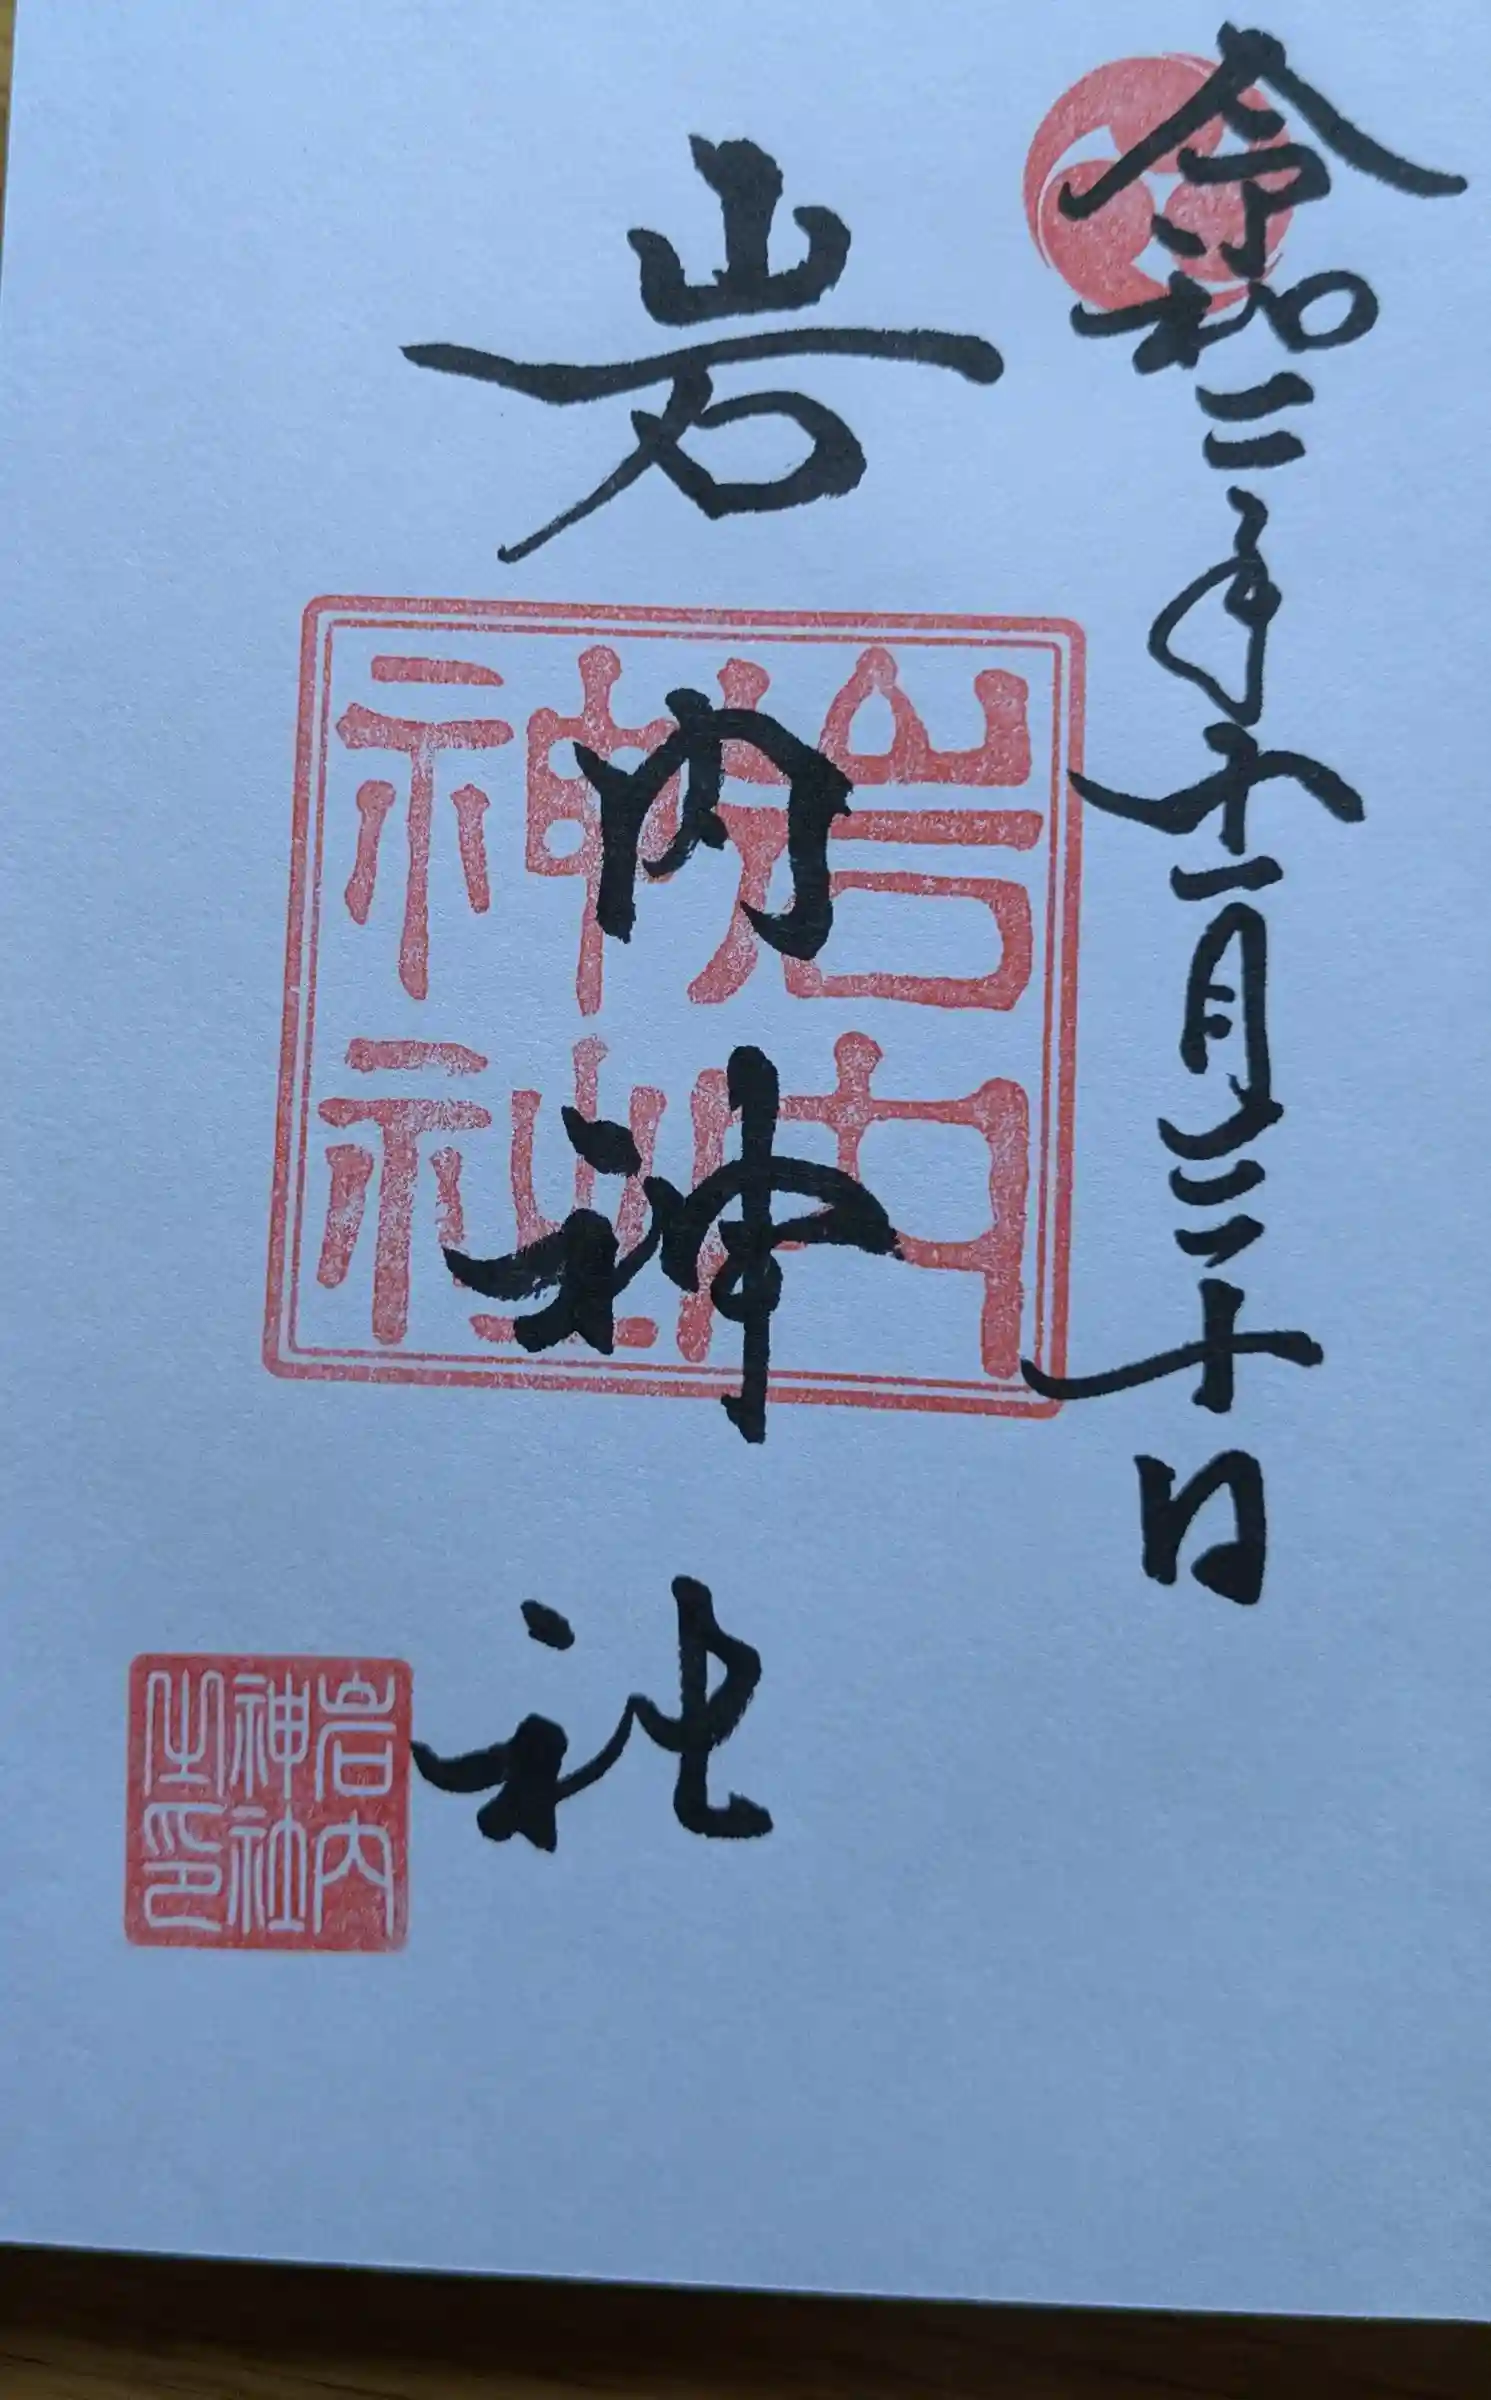 令和二年十一月三十日
岩内神社
岩内
神社
岩内
神社
之印